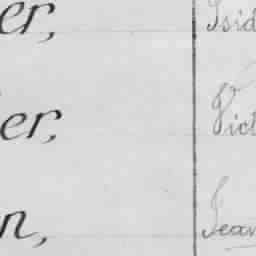 er, Isid
er, Vict
n, Jean